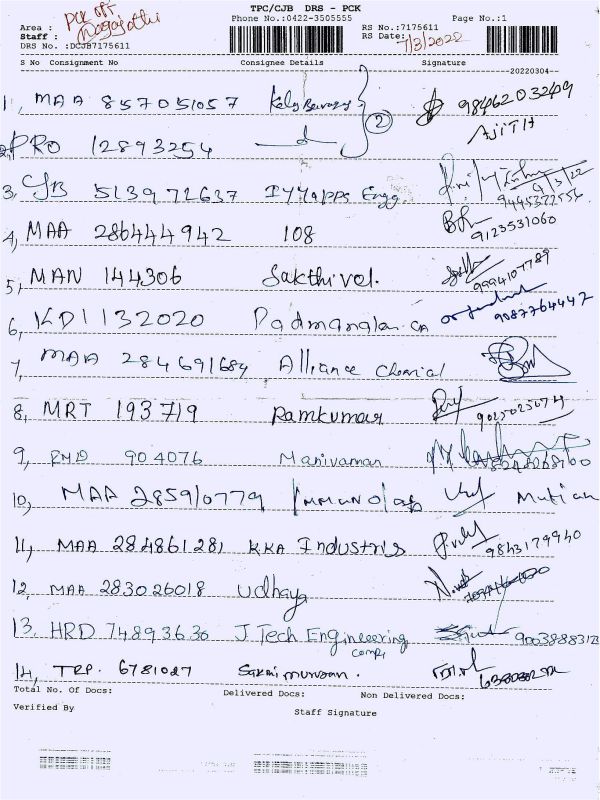 TPC/CJB DRS - PCK
Phone No.:0422-3505555 Page No.:1
Area : PCK off
Staff : Nagajothi
DRS No. :DCJB7175611
RS No.:7175611
RS Date: 7/3/2022
S No Consignment No Consignee Details Signature
20220304
1, MAA 857051057 2 9846203249
AJITH
2, PRO 12893254
3, CJB 513971637 Iyyappa Engg. 9/3/22
4, MAA 286444942 108 9123531060
5, MAN 144306 Sakthivel. 9994107789
6, KDI 132020 CA 9087764442
7, MAA 284691684 Alliance Chemical
8, MRT 193719 Ramkumar 9025025074
9, 904076 Manivannan
10, MAA 285910779
11, MAA 284861281 KKA Industris 9843179940
12, MAA 283026018 Udhaya
13. HRD 74893636 J Tech Engineering 9003888312
14, TRP. 6781027
Total No. Of Docs: Delivered Docs: Non Delivered Docs:
Verified By
Staff Signature